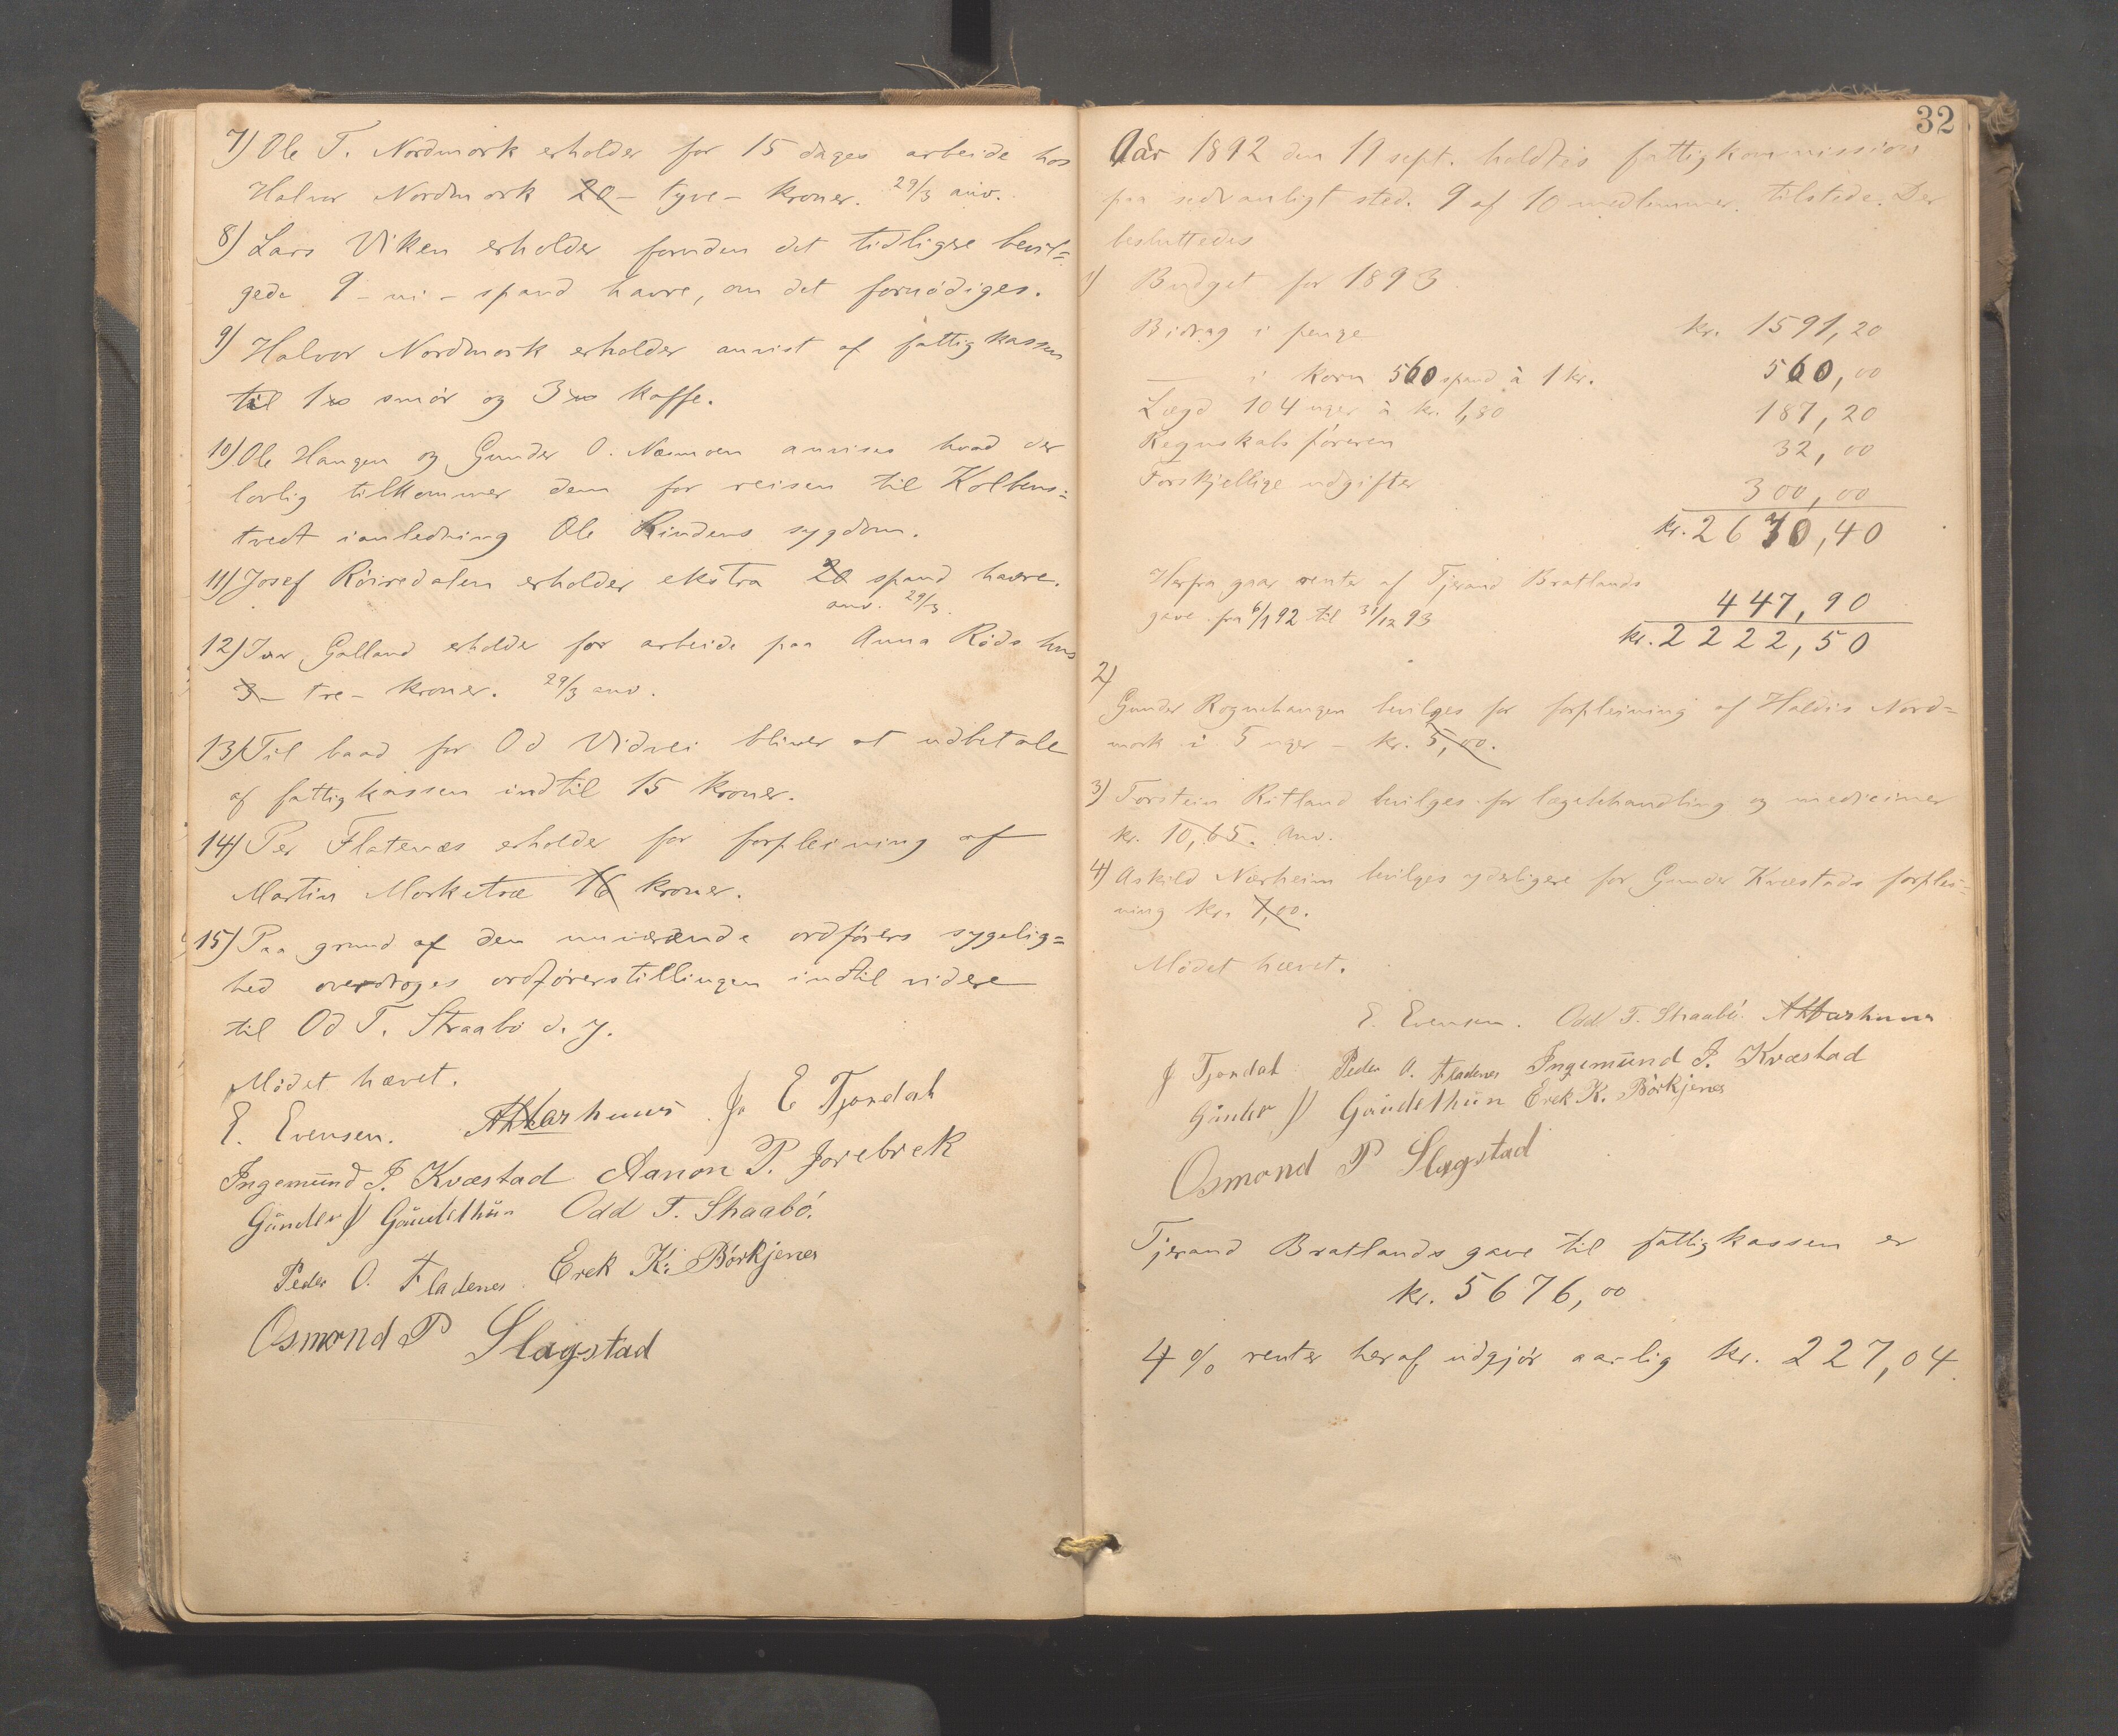 7) Ole T. Nordmork erholder for 15 dages arbeide hos
Halvor Nordmork 20 – tyve – kroner. 29/3 anv.
8) Lars Viken erholder foruden det tidligere bevil=
gede 9 – ni – spand havre, om det fornødiges.
9) Halvor Nordmork erholder anvist af fattigkassen
til 1 smør og 3 kaffe.
10) Ole Haugen og Gunder O. Næsmoen anvises hvad der
lovlig tilkommer dem for reisen til Kolbens=
tvedt i anledning Ole Rindens sygdom.
11) Josef Röiredalen erholder ekstra 20 spand havre.
anv. 29/3.
12) Ivar Galland erholder for arbeide paa Anna Röds hus
3 – tre – kroner. 29/3 anv.
13) Til baad for Od Vidvei bliver at udbetale
af fattigkassen indtil 15 kroner.
14) Per Flatenæs erholder for forpleining af
Martin Morketræ 16 kroner.
15) Paa grund af den nuværende ordførers sygelig=
hed overdroges ordførerstillingen indtil videre
til Od T. Straabø d. y.
Mödet hævet.
E. Evensen. J. E Tjøndal
Ingemund J. Kvæstad Aanon P. Jorebrek
Gunder Gaudethun Odd T. Straabö.
Peder O. Fladenes. Erek K. Börkjenes
Osmond P Slagstad
32
Aar 1892 den 19 sept. holdtes fattigkommission
paa sedvanligt sted. 9 af 10 medlemmer tilstede. Der
besluttedes
1) Budget for 1893
Bidrag i penge kr. 1591,20
— i korn 560 spand à 1 kr. 560,00
Lægd 104 uger à kr. 1,80 187,20
Regnskabsføreren 32,00
Forskjellige udgifter 300,00
kr. 2670,40
Herfra gaar renter af Tjerand Bratlands
gave fra 6/1 92 til 31/12 93 447,90
kr. 2222,50
2)
Gunder Rognehaugen bevilges for forpleining af Haldis Nord=
mork i 5 uger – kr. 5,00.
3) Torstein Ritland bevilges for lægebehandling og mediciner
kr. 10,65. Anv.
4) Askild Nærheim bevilges yderligere for Gunder Kvæstads forplei=
ning kr. 7,00.
Mödet hævet.
E. Evensen. Odd T. Straabö.
J Tjøndal Peder O. Fladenes Ingemund J. Kvæstad
Gunder Gaudethun Erek K. Börkjenes
Osmond P Slagstad
Tjerand Bratlands gave til fattigkassen er
kr. 5676,00
4 % renter heraf udgjör aarlig kr. 227,04.